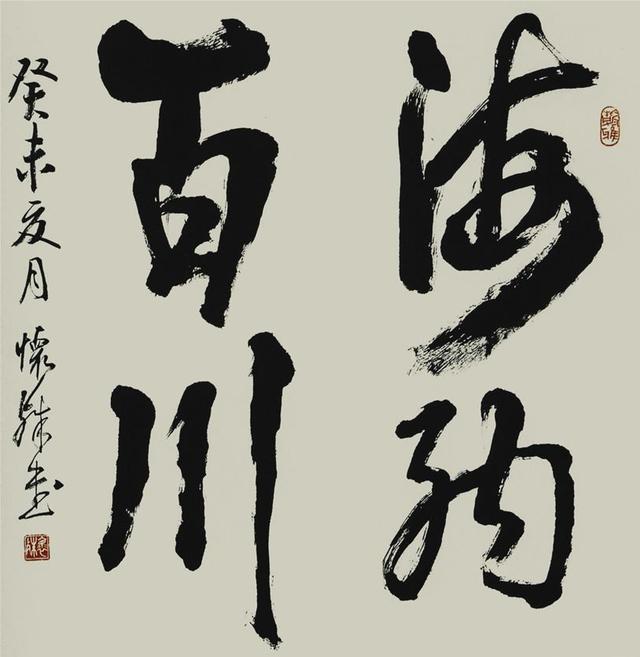 海纳
百川
癸未夏月 懷